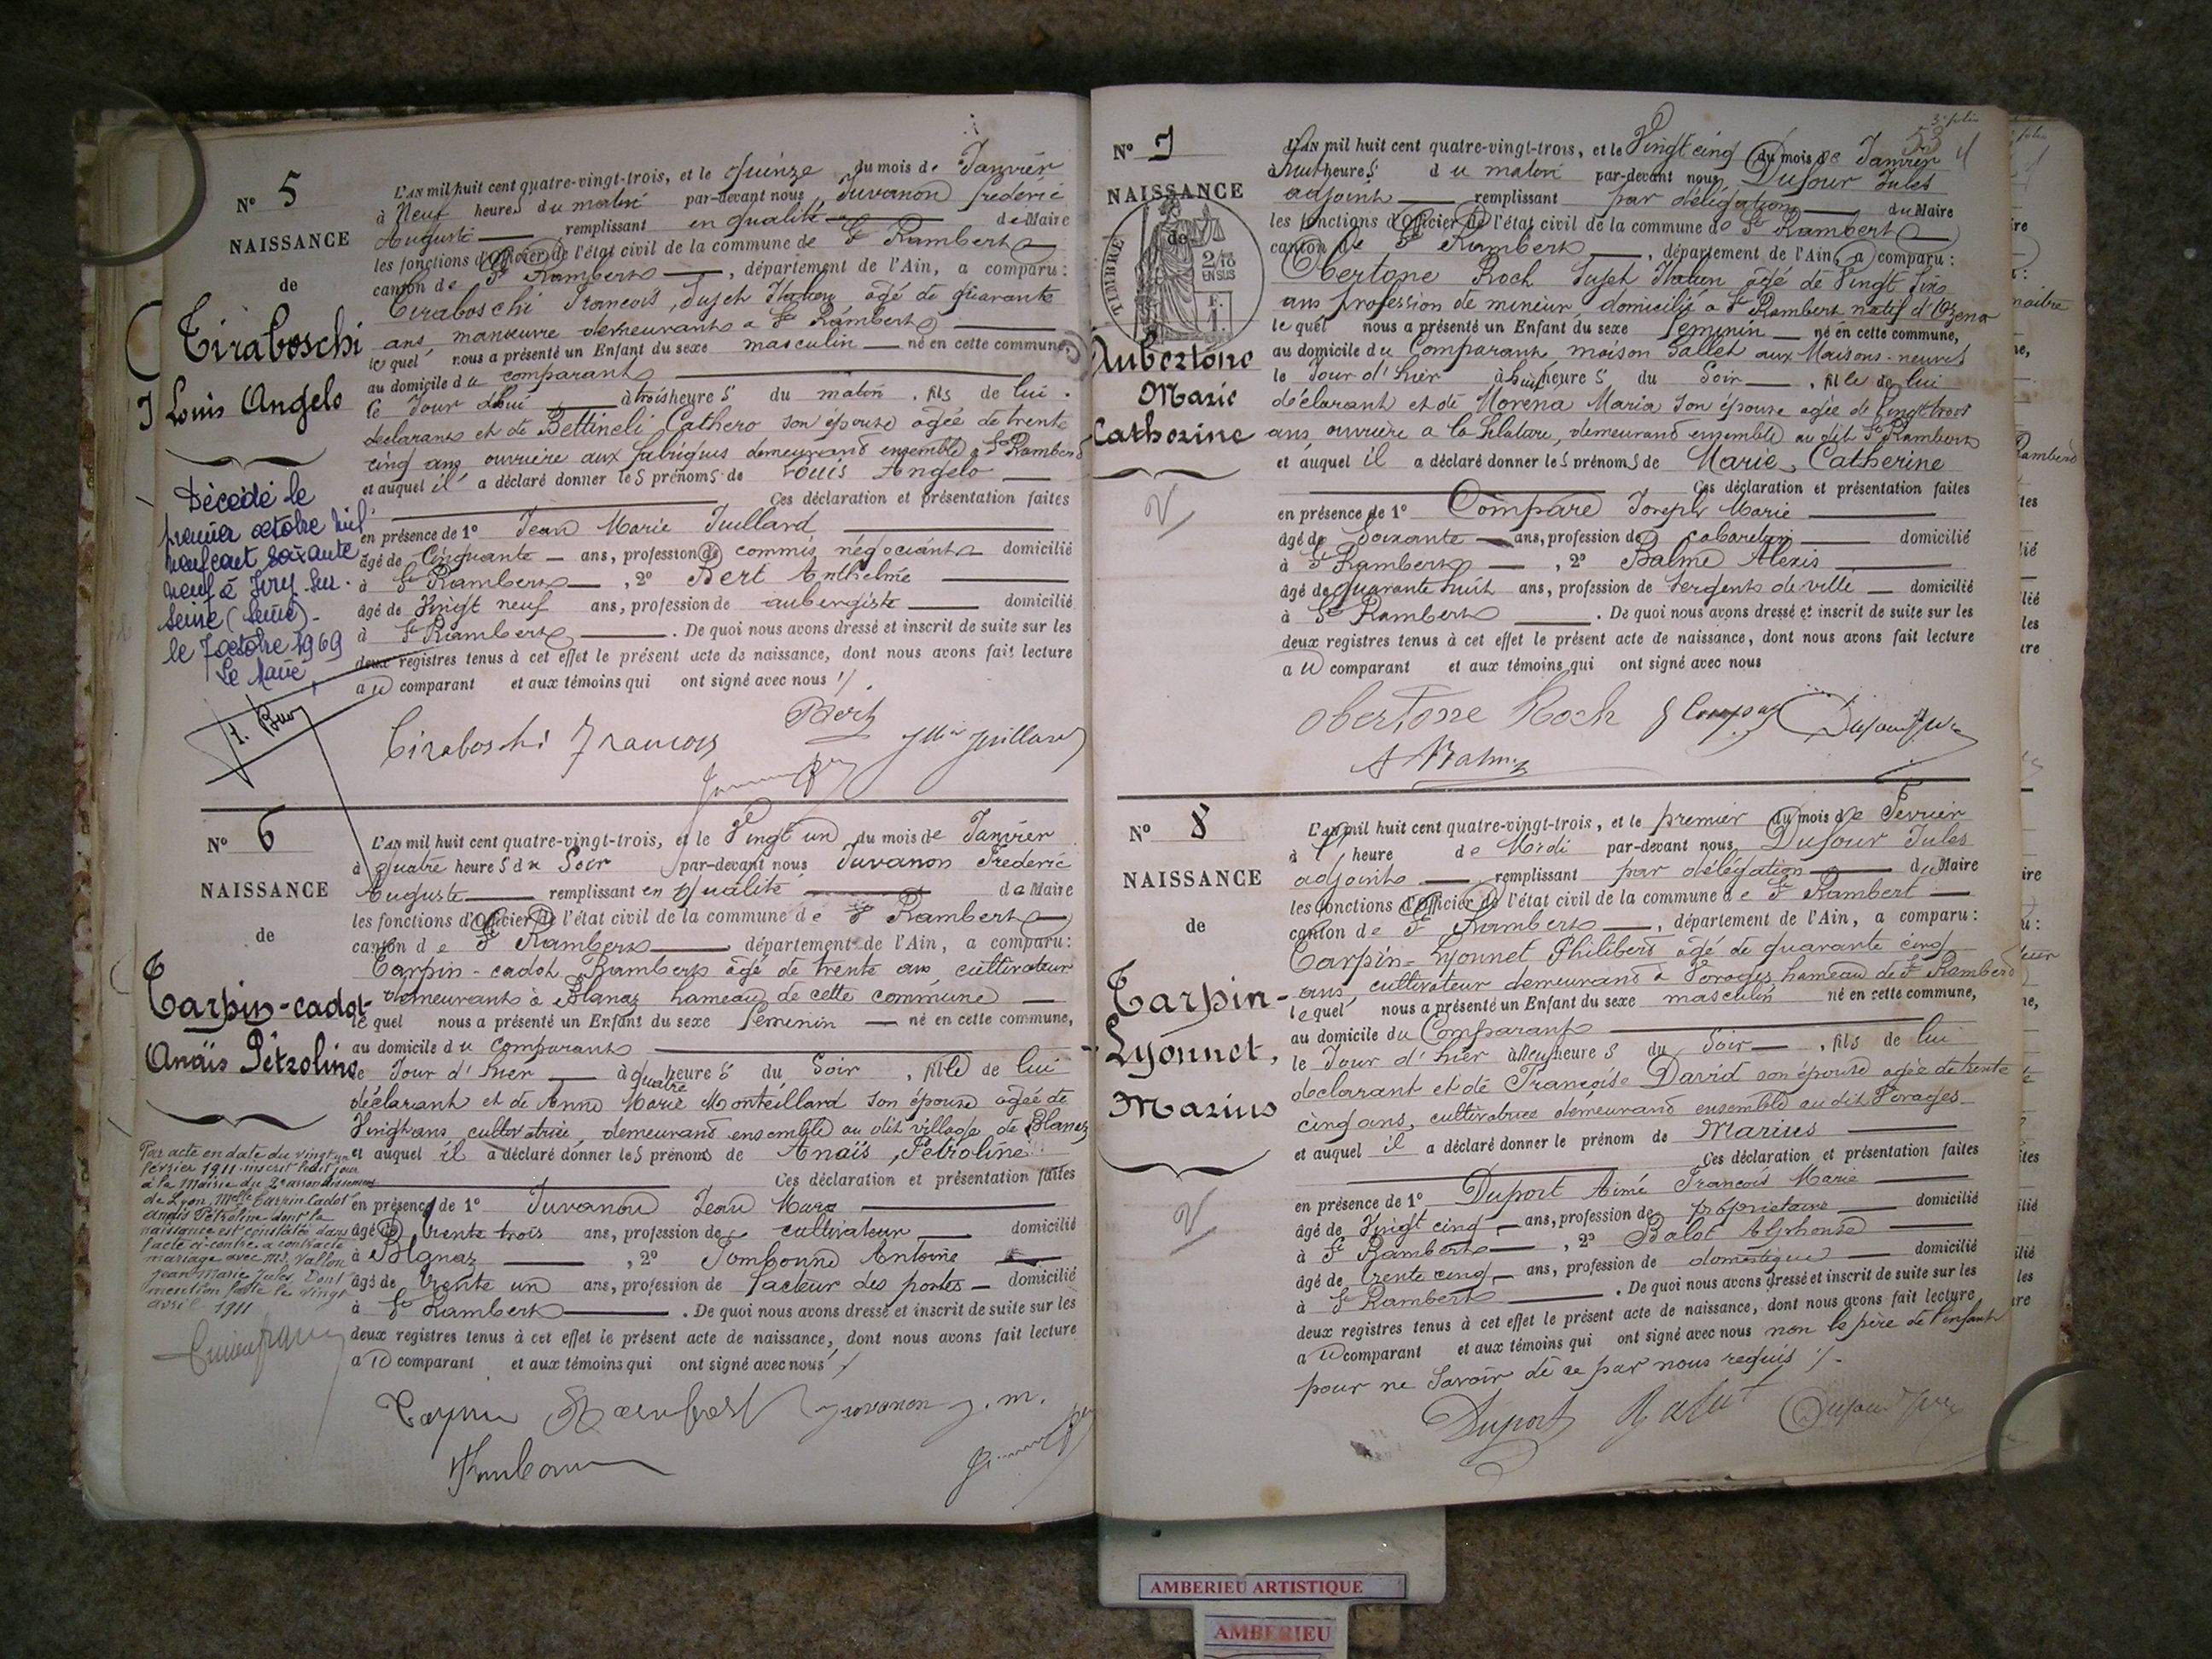 N° 5
NAISSANCE
de
Tiraboschi
Louis Angelo
Décédé le
premier octobre mil
neuf cent soixante
neuf à Ivry-sur-
Seine (Seine).
le 7 octobre 1969
Le Maire,
L'AN mil huit cent quatre-vingt-trois, et le quinze du mois de Janvier
à Neuf heures du matin par-devant nous Juvanon frédéric
Auguste remplissant en qualité de Maire
les fonctions d'Officier de l'état civil de la commune de St Rambert
canton de St Rambert, département de l'Ain, a comparu:
Tiraboschi François, Sujet Italien agé de quarante
ans manœuvre demeurant a St Rambert
le quel nous a présenté un Enfant du sexe masculin né en cette commune,
au domicile du comparant
le Jour d'hui à trois heures du matin, fils de lui
declarant et de Bettineli Cathero son épouse agée de trente
cinq ans ouvriere aux fabriques demeurant ensemble a St Rambert
et auquel il a déclaré donner les prénoms de Louis Angelo
Ces déclaration et présentation faites
en présence de 1° Jean Marie Juillard
âgé de Cinquante ans, profession de commis négociant domicilié
à St Rambert, 2° Bert Anthelme
âgé de Vingt neuf ans, profession de aubergiste domicilié
à St Rambert. De quoi nous avons dressé et inscrit de suite sur les
deux registres tenus à cet effet le présent acte de naissance, dont nous avons fait lecture
au comparant et aux témoins qui ont signé avec nous
Tiraboschi Francois Bert Juillard
N° 6
NAISSANCE
de
Tarpin-cadot
Anaïs Pétroline
Par acte en date du vingt un
février 1911 inscrit ledit jour
à la Mairie du 2e arrondissement
de Lyon, Melle Tarpin Cadot
Anaïs Pétroline dont la
naissance est constatée dans
l'acte ci-contre a contracté
mariage avec Mr. Vallon
Jean Marie Jules. Dont
mention faite le vingt
avril 1911
L'AN mil huit cent quatre-vingt-trois, et le Vingt un du mois de Janvier
à quatre heures du Soir par-devant nous Juvanon Frederic
Auguste remplissant en qualité de Maire
les fonctions d'Officier de l'état civil de la commune de St Rambert
canton de St Rambert département de l'Ain, a comparu:
Tarpin-cadot Rambert âgé de trente ans cultivateur
demeurant à Blanaz hameau de cette commune
le quel nous a présenté un Enfant du sexe feminin né en cette commune,
au domicile du comparant
le Jour d'hier à quatre heures du Soir, fille de lui
déclarant et de Anne Marie Monteillard son épouse agée de
Vingt ans cultivatrice, demeurant ensemble au dit village de Blanaz
et auquel il a déclaré donner les prénoms de Anaïs, Pétroline
Ces déclaration et présentation faites
en présence de 1° Juvanon Jean Marc
âgé de trente trois ans, profession de cultivateur domicilié
à Blanaz, 2° Tombonne Antoine
âgé de trente un ans, profession de facteur des postes domicilié
à St Rambert. De quoi nous avons dressé et inscrit de suite sur les
deux registres tenus à cet effet le présent acte de naissance, dont nous avons fait lecture
au comparant et aux témoins qui ont signé avec nous
Juvanon J. M.
3e folio
53
N° 7
NAISSANCE
de
TIMBRE
2/10
EN SUS
Aubertone
Marie
Catherine
L'AN mil huit cent quatre-vingt-trois, et le Vingt cinq du mois de Janvier
à huit heures du matin par-devant nous Dufour Jules
adjoint remplissant par délégation du Maire
les fonctions d'Officier de l'état civil de la commune de St Rambert
canton de St Rambert, département de l'Ain, a comparu:
Obertone Roch Sujet Italien âgé de Vingt Six
ans profession de mineur, domicilié a St Rambert natif d'Ozena
le quel nous a présenté un Enfant du sexe feminin né en cette commune,
au domicile du Comparant maison Sallet aux Maisons-neuves
le Jour d'hier à huit heures du Soir, fille de lui
déclarant et de Morena Maria son épouse agée de Vingt trois
ans, ouvrière a la filature, demeurant ensemble au dit St Rambert
et auquel il a déclaré donner les prénoms de Marie, Catherine
Ces déclaration et présentation faites
en présence de 1° Compare Joseph Marie
âgé de Soixante ans, profession de cabaretier domicilié
à St Rambert, 2° Balme Alexis
âgé de quarante huit ans, profession de Sergent de ville domicilié
à St Rambert. De quoi nous avons dressé et inscrit de suite sur les
deux registres tenus à cet effet le présent acte de naissance, dont nous avons fait lecture
au comparant et aux témoins qui ont signé avec nous
Obertone Roch
A Balme
N° 8
NAISSANCE
de
Tarpin-
Lyonnet,
Marius
L'AN mil huit cent quatre-vingt-trois, et le premier du mois de Fevrier
à l' heure de Midi par-devant nous Dufour Jules
adjoint remplissant par délégation du Maire
les fonctions d'Officier de l'état civil de la commune de St Rambert
canton de St Rambert, département de l'Ain, a comparu:
Tarpin-Lyonnet Philibert âgé de quarante cinq
ans cultivateur demeurant à Vorages hameau de St Rambert
le quel nous a présenté un Enfant du sexe masculin né en cette commune,
au domicile du Comparant
le Jour d'hier à Neuf heures du Soir, fils de lui
declarant et de Françoise David son épouse agée de trente
cinq ans, cultivatrice demeurant ensemble au dit Vorages
et auquel il a déclaré donner le prénom de Marius
Ces déclaration et présentation faites
en présence de 1° Duport Aimé François Marie
âgé de Vingt cinq ans, profession de propriétaire domicilié
à St Rambert, 2° Balot Alphonse
âgé de trente cinq ans, profession de domestique domicilié
à St Rambert. De quoi nous avons dressé et inscrit de suite sur les
deux registres tenus à cet effet le présent acte de naissance, dont nous avons fait lecture
au comparant et aux témoins qui ont signé avec nous non le père de l'enfant
pour ne Savoir de ce par nous requis
Duport
AMBERIEU ARTISTIQUE
AMBERIEU